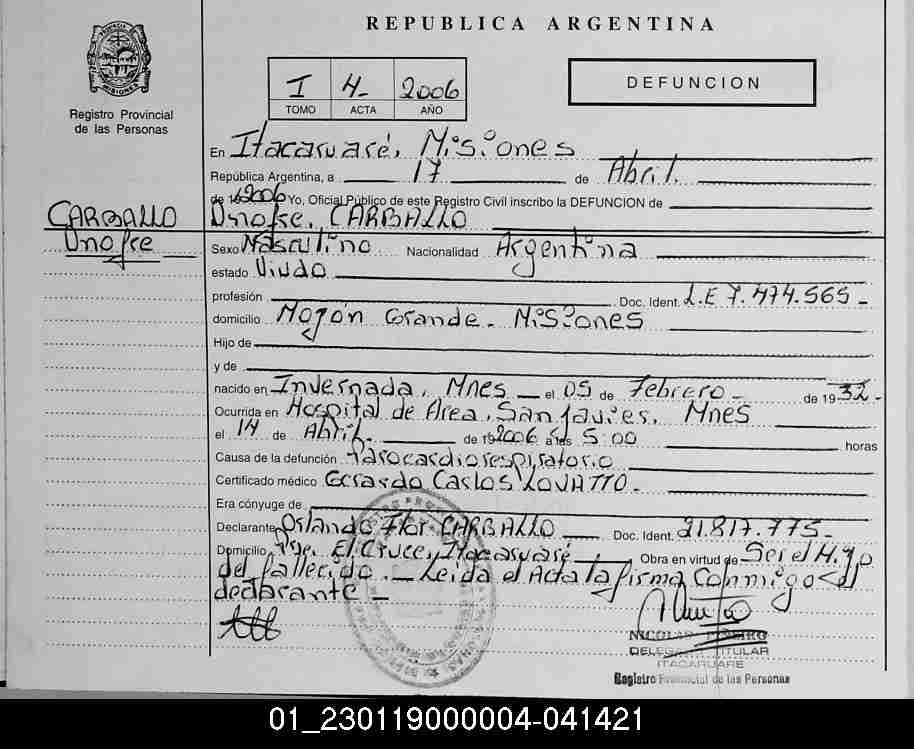 REPUBLICA ARGENTINA
PROVINCIA DE
MISIONES
Registro Provincial
de las Personas
I 4- 2006
TOMO ACTA AÑO
DEFUNCION
En Itacaruaré, Misiones
República Argentina, a 17 de Abril.
de 19 2006 Yo, Oficial Público de este Registro Civil inscribo la DEFUNCION de
CARBALLO
Onofre
Onofre, CARBALLO
Sexo Masculino Nacionalidad Argentina
estado Viudo
profesión Doc. Ident. L.E 7.474.565-
domicilio Mojón Grande- Misiones
Hijo de
y de
nacido en Invernada, Mnes - el 05 de Febrero - de 1932-
Ocurrida en Hospital de Area, San Javier, Mnes
el 14 de Abril- de 19 2006 a las 5:00 horas
Causa de la defunción Parocardiorespiratorio
Certificado médico Gerardo Carlos LOVATTO-
Era cónyuge de
Declarante Orlando Flor CARBALLO Doc. Ident. 21.817.775-
Domicilio Pje. El Cruce, Itacaruaré Obra en virtud de Ser el Hijo
del fallecido.- Leida el Acta la firma conmigo el
declarante-
NICOLAS PIÑEIRO
DELEGADO TITULAR
ITACARUARE
Registro Provincial de las Personas
01_230119000004-041421